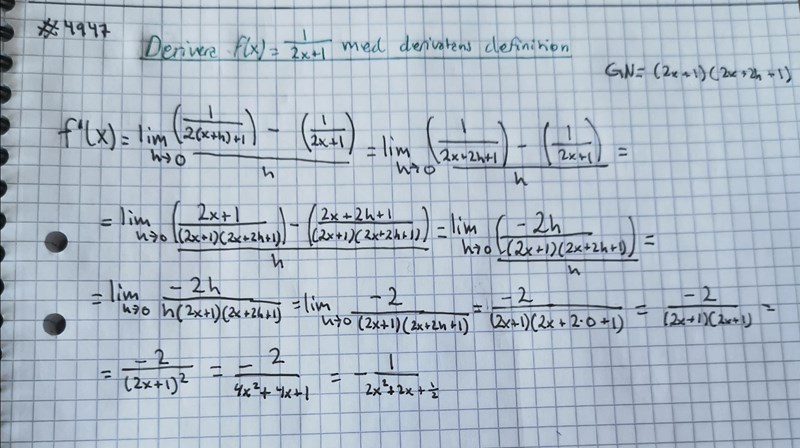 #4947
Derivera f(x) = 1/(2x+1) med derivatans definition
GN = (2x+1)(2x+2h+1)
f'(x) = lim h→0 ((1/(2(x+h)+1)) - (1/(2x+1)))/h = lim h→0 ((1/(2x+2h+1)) - (1/(2x+1)))/h =
= lim h→0 (((2x+1)/((2x+1)(2x+2h+1))) - ((2x+2h+1)/((2x+1)(2x+2h+1))))/h = lim h→0 (-2h/((2x+1)(2x+2h+1)))/h =
= lim h→0 -2h/(h(2x+1)(2x+2h+1)) = lim h→0 -2/((2x+1)(2x+2h+1)) = -2/((2x+1)(2x+2·0+1)) = -2/((2x+1)(2x+1)) =
= -2/(2x+1)² = -2/(4x²+4x+1) = -1/(2x²+2x+1/2)